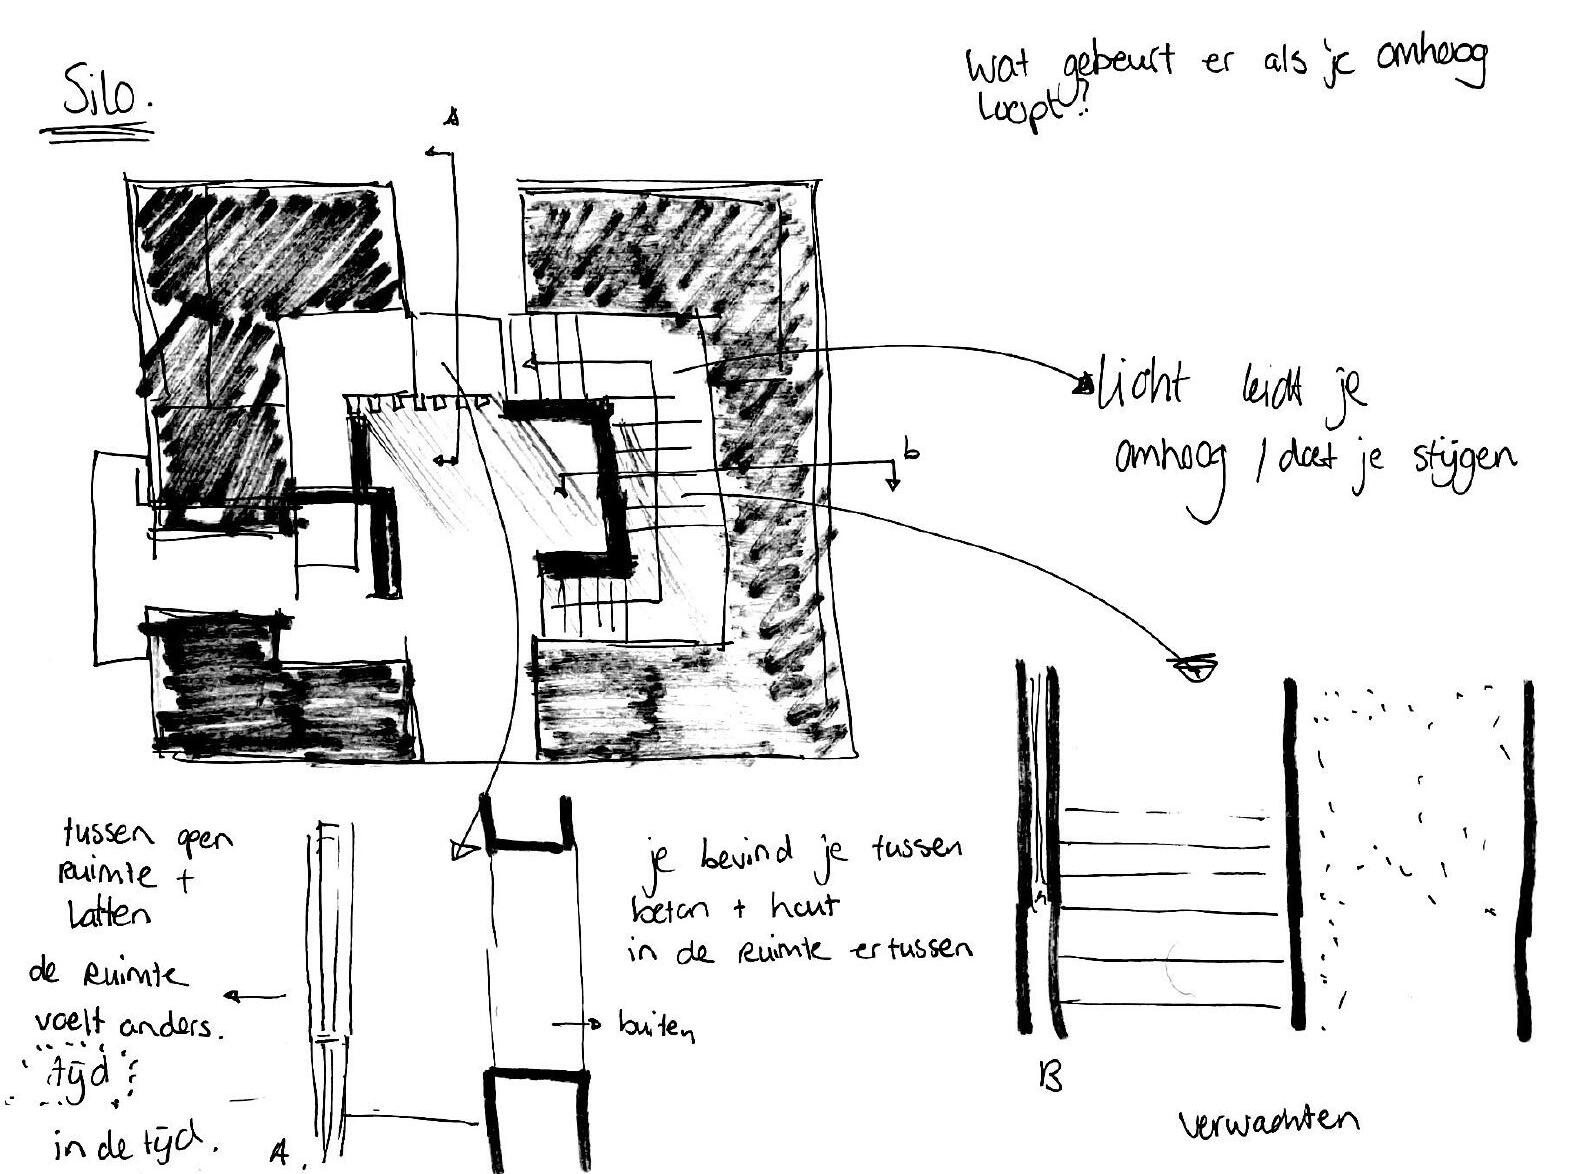 Silo.
Wat gebeurt er als je omhoog
loopt?
A
b
licht leidt je
omhoog / doet je stijgen
tussen open
ruimte +
latten
de ruimte
voelt anders.
tijd
in de tijd.
A.
je bevind je tussen
beton + hout
in de ruimte ertussen
buiten
B
verwachten